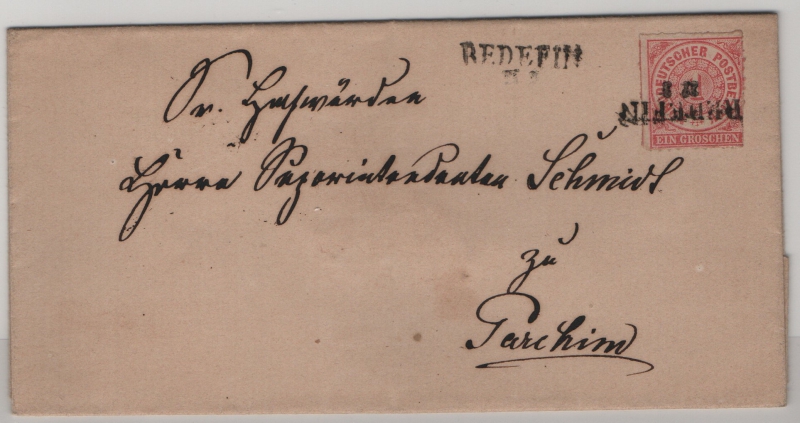 REDEFIN
DEUTSCHER POSTBE
1
EIN GROSCHEN
REDEFIN
Sr. Hochwürden
Herrn Superintendenten Schmidt
zu
Parchim